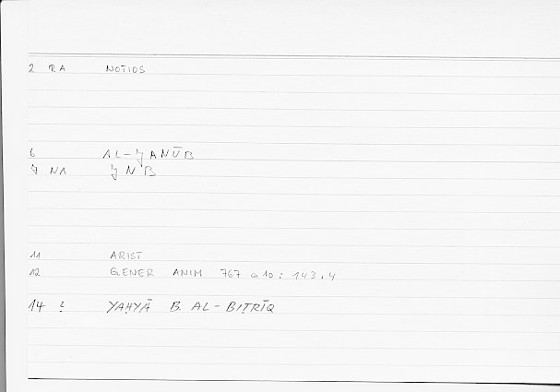 2 RA NOTIOS
6 AL-ǮANŪB
7 NA ǮNB
11 ARIST
12 GENER ANIM 767 a 10 : 143,4
14 : YAḤYĀ B. AL-BIṬRĪQ